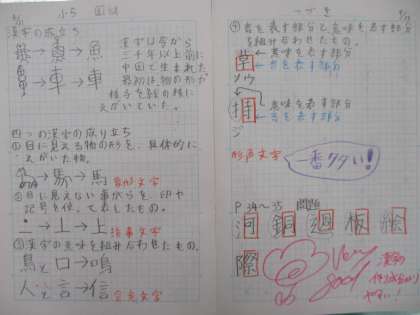 小5 国語
漢字の成り立ち
→ → 魚
→ 車 → 車
漢字は今から
三千年以上前に
中国で生まれた
最初は物の形や
様子を絵の様に
えがいていた。
四つの漢字の成り立ち
①目に見える物の形を、具体的に
えがいた物。
→ → 馬 象形文字
②目に見えない事がらを印や
記号を使って表したもの。
→ 上 → 上 指事文字
③漢字の意味を組み合わせたもの。
鳥と口→鳴
人と言→信 会意文字
つづき
④音を表す部分と意味を表す部分
を組み合わせたもの。
意味を表す部分
音を表す部分
意味を表す部分
音を表す部分
形声文字
一番多い!
問題
河 銅 週 板 絵
際
Very
good